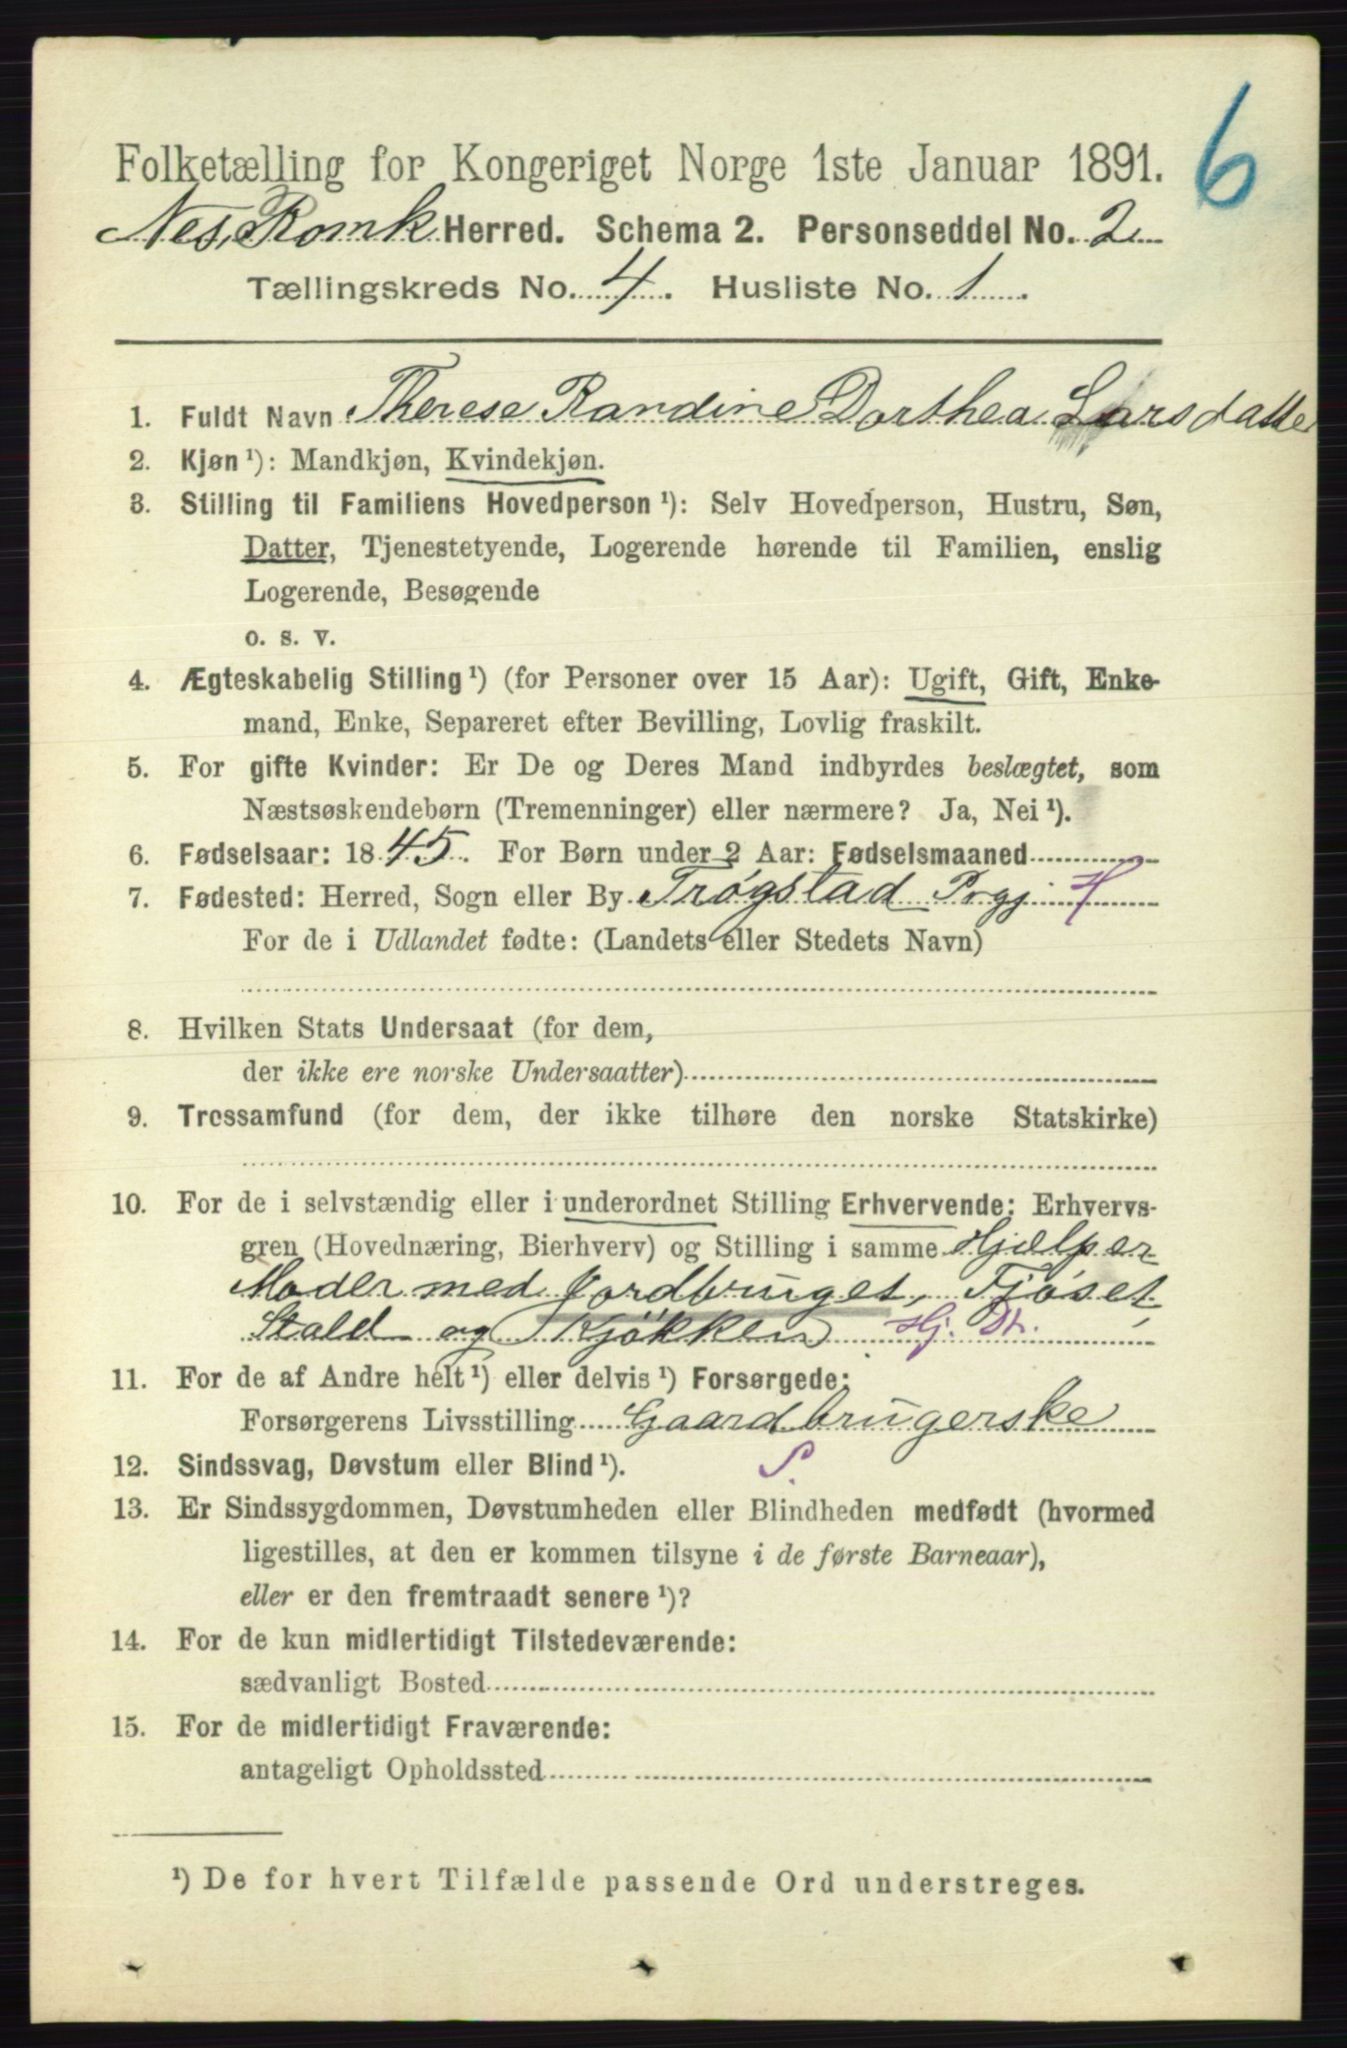 6
Folketælling for Kongeriget Norge 1ste Januar 1891.
Nes, Romk Herred. Schema 2. Personseddel No. 2
Tællingskreds No. 4. Husliste No. 1.
1. Fuldt Navn Therese Randine Dorthea Larsdatter
2. Kjøn¹): Mandkjøn, Kvindekjøn.
3. Stilling til Familiens Hovedperson¹): Selv Hovedperson, Hustru, Søn,
Datter, Tjenestetyende, Logerende hørende til Familien, enslig
Logerende, Besøgende
o. s. v.
4. Ægteskabelig Stilling¹) (for Personer over 15 Aar): Ugift, Gift, Enke-
mand, Enke, Separeret efter Bevilling, Lovlig fraskilt.
5. For gifte Kvinder: Er De og Deres Mand indbyrdes beslægtet, som
Næstsøskendebørn (Tremenninger) eller nærmere? Ja, Nei¹).
6. Fødselsaar: 1845. For Børn under 2 Aar: Fødselsmaaned
7. Fødested: Herred, Sogn eller By Trøgstad Prgj. H
For de i Udlandet fødte: (Landets eller Stedets Navn)
8. Hvilken Stats Undersaat (for dem,
der ikke ere norske Undersaatter)
9. Trossamfund (for dem, der ikke tilhøre den norske Statskirke)
10. For de i selvstændig eller i underordnet Stilling Erhvervende: Erhvervs-
gren (Hovednæring, Bierhverv) og Stilling i samme Hjælper
Moder med Jordbruget, Fjøset,
Stald og Kjøkken Hj. Dt.
11. For de af Andre helt¹) eller delvis¹) Forsørgede:
Forsørgerens Livsstilling Gaardbrugerske
12. Sindssvag, Døvstum eller Blind¹). S.
13. Er Sindssygdommen, Døvstumheden eller Blindheden medfødt (hvormed
ligestilles, at den er kommen tilsyne i de første Barneaar),
eller er den fremtraadt senere¹)?
14. For de kun midlertidigt Tilstedeværende:
sædvanligt Bosted
15. For de midlertidigt Fraværende:
antageligt Opholdssted
¹) De for hvert Tilfælde passende Ord understreges.